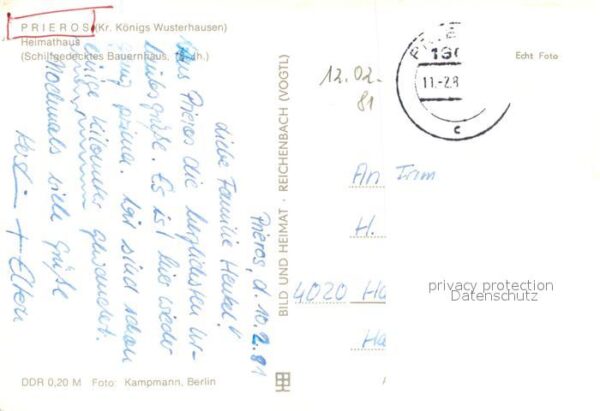 PRIEROS (Kr. Königs Wusterhausen)
Heimathaus
(Schilfgedecktes Bauernhaus,
Prieros, d. 10.2.81
Liebe Familie Henkel!
Aus Prieros die herzlichsten Ur-
laubsgrüße. Es ist hier wieder
ganz prima. Wir sind schon
einige Kilometer gewandert.
Nochmals viele Grüße
+ Eltern
DDR 0,20 M Foto: Kampmann, Berlin
BILD UND HEIMAT · REICHENBACH (VOGTL)
12.02.
81
11.-2.8
c
Echt Foto
An Fam
H.
4020 Ha
Ha
privacy protection
Datenschutz